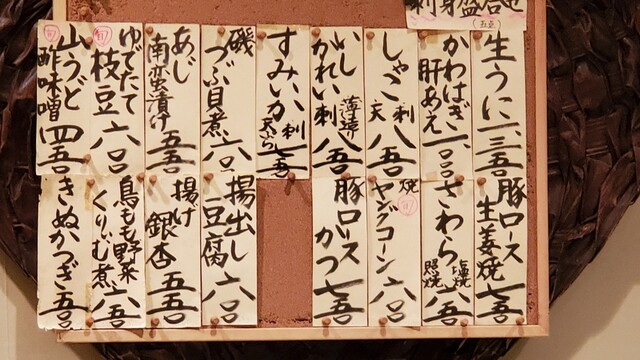 刺身盛合せ
(五点)
生うに 一、三五〇
かわはぎ 肝あえ 一、一〇〇
しゃこ 刺 天 八五〇
いしがれい 薄造 刺 八五〇
すみいか 刺 天ぷら 七五〇
磯つぶ貝煮 六〇〇
あじ 南蛮漬け 五五〇
ゆでたて 旬 枝豆 六〇〇
旬 山うど 酢味噌 四五〇
豚ロース 生姜焼 七五〇
さわら 塩焼 照焼 六五〇
焼 旬 ヤングコーン 六〇〇
豚ロース かつ 七五〇
揚出し 豆腐 六〇〇
揚げ 銀杏 五五〇
鳥もも野菜 くりぃむ煮 六五〇
きぬかつぎ 五五〇